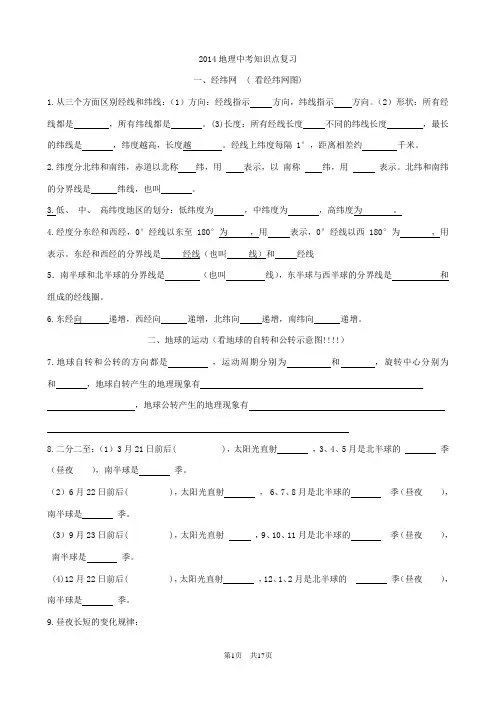 2014地理中考知识点复习
一、经纬网 ( 看经纬网图)
1.从三个方面区别经线和纬线:(1)方向:经线指示___方向,纬线指示___方向。(2)形状:所有经
线都是____,所有纬线都是____。(3)长度:所有经线长度___不同的纬线长度____,最长
的纬线是____,纬度越高,长度越____。经线上纬度每隔 1°,距离相差约____千米。
2.纬度分北纬和南纬,赤道以北称___纬,用___表示,以 南称___纬,用___表示。北纬和南纬
的分界线是____纬线,也叫____。
3.低、 中、 高纬度地区的划分:低纬度为____,中纬度为____,高纬度为____。
4.经度分东经和西经,0°经线以东至 180°为____,用___表示,0°经线以西 180°为____,用
表示。东经和西经的分界线是____经线(也叫____线)和___经线
5．南半球和北半球的分界线是____(也叫____线),东半球与西半球的分界线是____和
组成的经线圈。
6.东经向____递增,西经向___递增,北纬向___递增,南纬向___递增。
二、地球的运动(看地球的自转和公转示意图!!!!)
7.地球自转和公转的方向都是____,运动周期分别为____和____,旋转中心分别为
和____,地球自转产生的地理现象有________
________,地球公转产生的地理现象有________
________
8.二分二至:(1)3月21日前后( ),太阳光直射____,3、4、5月是北半球的____季
(昼夜 ),南半球是____季。
(2)6月22日前后( ),太阳光直射____, 6、7、8月是北半球的____季(昼夜 ),
南半球是____季。
(3)9月23日前后( ),太阳光直射____,9、10、11月是北半球的____季(昼夜 ),
南半球是____季。
(4)12月22日前后( ),太阳光直射____,12、1、2月是北半球的____季(昼夜 ),
南半球是____季。
9.昼夜长短的变化规律:
第1页 共17页